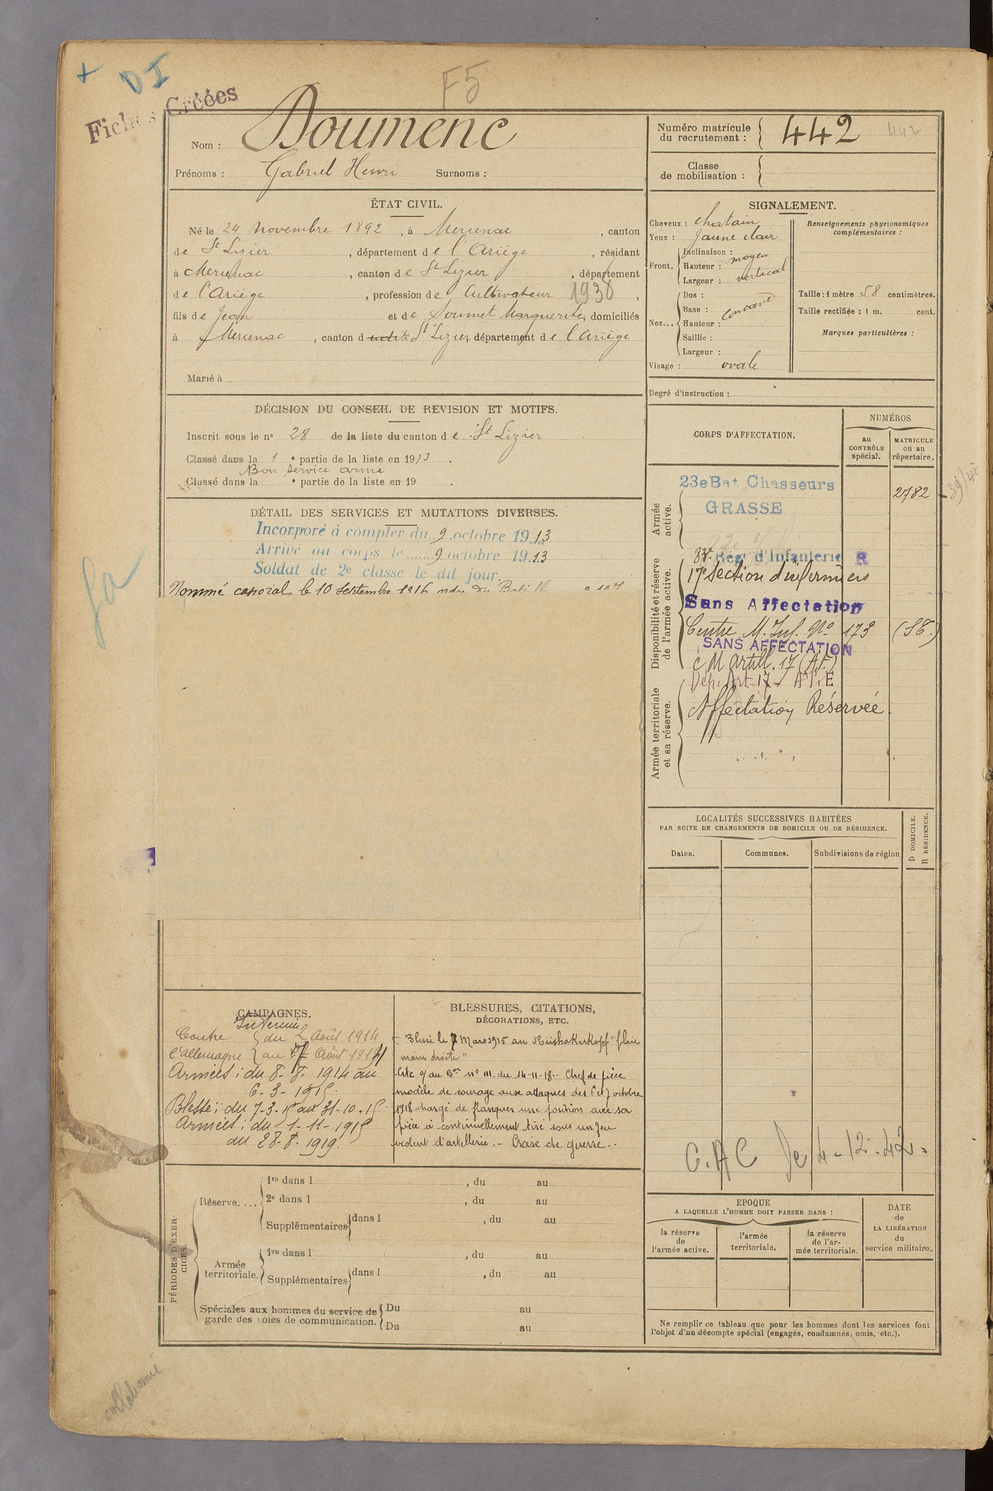 F5
DI
Fiches Créées
Nom : Doumenc
Prénoms : Gabriel Henri Surnoms :
Numéro matricule du recrutement : 442 442
Classe de mobilisation :
ÉTAT CIVIL.
Né le 24 novembre 1892, à Mérignac, canton
de St Lizier, département de l'Ariège, résidant
à, canton de St Lizier, département
de l'Ariège, profession de Cultivateur 1938,
fils de Jean et de Marguerite, domiciliés
à, canton d St Lizier, département de l'Ariège
Marié à
SIGNALEMENT.
Cheveux : chatain
Yeux : Jaune clair
Front. Inclinaison :
Hauteur : moyen
Largeur : vertical
Nez... Dos :
Base : concave
Hauteur :
Saillie :
Largeur :
Visage : ovale
Renseignements physionomiques complémentaires :
Taille : 1 mètre 58 centimètres.
Taille rectifiée : 1 m. cent.
Marques particulières :
Degré d'instruction :
DÉCISION DU CONSEIL DE REVISION ET MOTIFS.
Inscrit sous le no 28 de la liste du canton de St Lizier
Classé dans la 1e partie de la liste en 1913.
Bon service armé
Classé dans la e partie de la liste en 19 .
DÉTAIL DES SERVICES ET MUTATIONS DIVERSES.
Incorporé à compter du 9 octobre 1913
Arrivé au corps le 9 octobre 1913
Soldat de 2e classe le dit jour.
Nommé caporal le 10 septembre 1916
CORPS D'AFFECTATION.
NUMÉROS
au CONTRÔLE spécial.
MATRICULE ou au répertoire.
Armée active.
23e Bat Chasseurs
GRASSE
2782
39/40
Disponibilité et réserve de l'armée active.
Rég. d'Infanterie R
17e Section d'infirmiers
Sans Affectation
Centre M. Inf. No 173 (SE.)
SANS AFFECTATION
c M artill. 17 (AF)
Armée territoriale et sa réserve.
Affectation Réservée
LOCALITÉS SUCCESSIVES HABITÉES
PAR SUITE DE CHANGEMENTS DE DOMICILE OU DE RÉSIDENCE.
Dates.
Communes.
Subdivisions de région
D DOMICILE.
R RÉSIDENCE.
C.A.C le 4-12-42.
CAMPAGNES.
Intérieur
Contre du 2 Août 1914
l'Allemagne au 7 Août 1914
Armées : du 8-8-1914 au
6-3-1915
Blessé : du 7-3-15 au 31-10-15
Armées : du 1-11-1915
au 28-8-1919
BLESSURES, CITATIONS, DÉCORATIONS, ETC.
Blessé le 7 Mars 1915 au Reichackerkopf "plaie
main droite"
Cité o/ du Bon no 111 du 14-11-18 - Chef de pièce
modèle de courage aux attaques des 6 et 7 octobre
1918 chargé de flanquer une position avec sa
pièce a continuellement tiré sous un feu
violent d'artillerie. - Croix de guerre..
PÉRIODES D'EXERCICES.
Réserve....
1re dans l , du au
2e dans l , du au
Supplémentaires dans l , du au
Armée territoriale.
1re dans l , du au
Supplémentaires dans l , du au
Spéciales aux hommes du service de garde des voies de communication.
Du au
Du au
EPOQUE
A LAQUELLE L'HOMME DOIT PASSER DANS :
la réserve de l'armée active.
l'armée territoriale.
la réserve de l'armée territoriale.
DATE de LA LIBÉRATION du service militaire.
Ne remplir ce tableau que pour les hommes dont les services font
l'objet d'un décompte spécial (engagés, condamnés, omis, etc.).